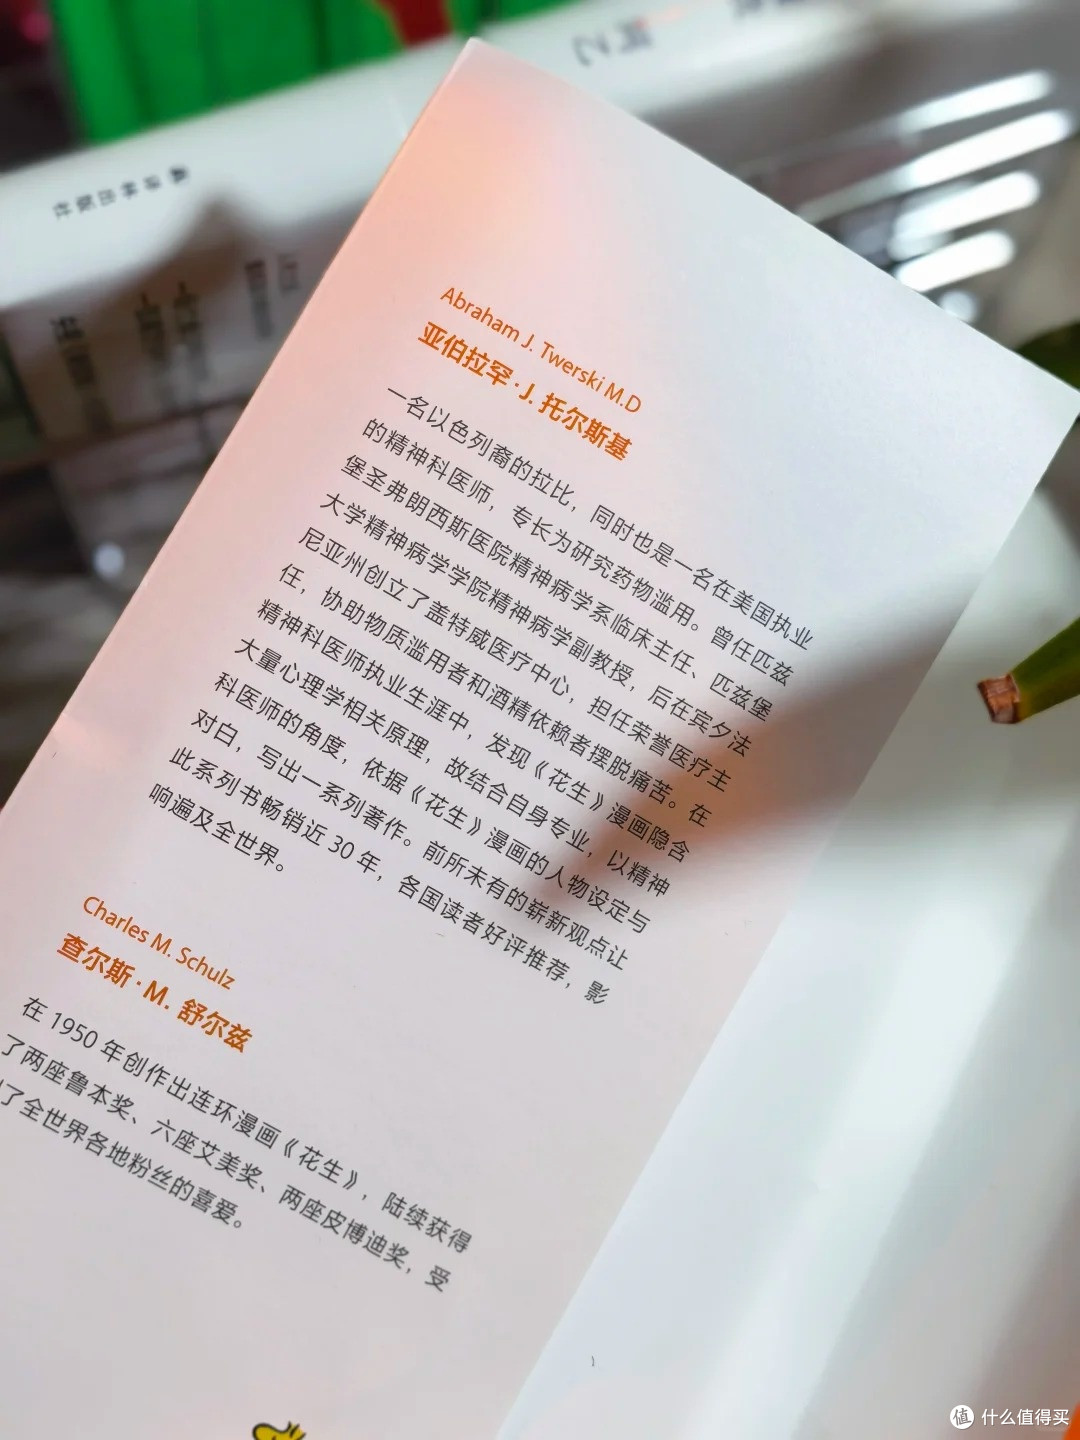 译林出版社
Abraham J. Twerski M.D
亚伯拉罕·J. 托尔斯基
一名以色列裔的拉比，同时也是一名在美国执业
的精神科医师，专长为研究药物滥用。曾任匹兹
堡圣弗朗西斯医院精神病学系临床主任、匹兹堡
大学精神病学学院精神病学副教授，后在宾夕法
尼亚州创立了盖特威医疗中心，担任荣誉医疗主
任，协助物质滥用者和酒精依赖者摆脱痛苦。在
精神科医师执业生涯中，发现《花生》漫画隐含
大量心理学相关原理，故结合自身专业，以精神
科医师的角度，依据《花生》漫画的人物设定与
对白，写出一系列著作。前所未有的崭新观点让
此系列书畅销近 30 年，各国读者好评推荐，影
响遍及全世界。
Charles M. Schulz
查尔斯·M. 舒尔兹
在 1950 年创作出连环漫画《花生》，陆续获得
了两座鲁本奖、六座艾美奖、两座皮博迪奖，受
到了全世界各地粉丝的喜爱。
值 什么值得买